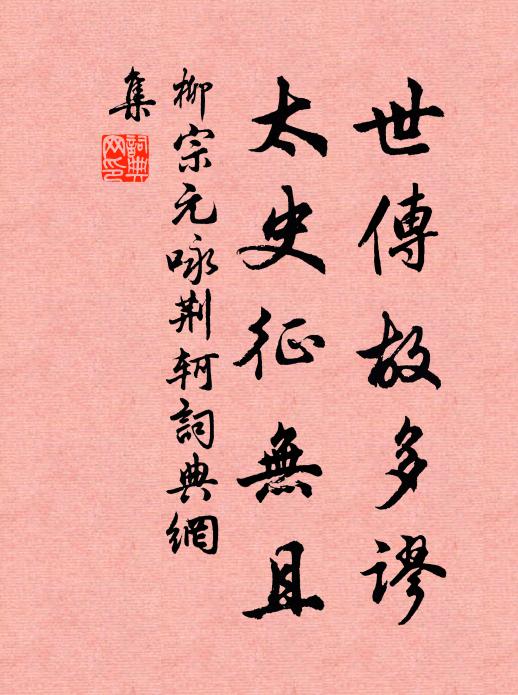 世傳故多謬
太史征無且
柳宗元咏荆軻詞典網
集
詞典
网印